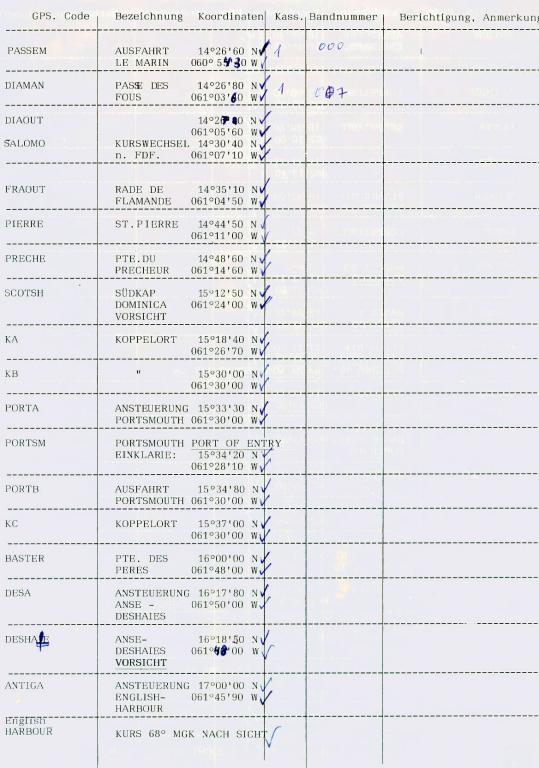 GPS. Code Bezeichnung Koordinaten Kass. Bandnummer Berichtigung, Anmerkung
PASSEM AUSFAHRT 14°26'60 N 1 000
LE MARIN 060°5 0 W
DIAMAN PASSE DES 14°26'80 N 1
FOUS 061°03' 0 W
DIAOUT 14°26 N
061°05'60 W
SALOMO KURSWECHSEL 14°30'40 N
n. FDF. 061°07'10 W
FRAOUT RADE DE 14°35'10 N
FLAMANDE 061°04'50 W
PIERRE ST.PIERRE 14°44'50 N
061°11'00 W
PRECHE PTE.DU 14°48'60 N
PRECHEUR 061°14'60 W
SCOTSH SÜDKAP 15°12'50 N
DOMINICA 061°24'00 W
VORSICHT
KA KOPPELORT 15°18'40 N
061°26'70 W
KB " 15°30'00 N
061°30'00 W
PORTA ANSTEUERUNG 15°33'30 N
PORTSMOUTH 061°30'00 W
PORTSM PORTSMOUTH PORT OF ENTRY
EINKLARIE: 15°34'20 N
061°28'10 W
PORTB AUSFAHRT 15°34'80 N
PORTSMOUTH 061°30'00 W
KC KOPPELORT 15°37'00 N
061°30'00 W
BASTER PTE. DES 16°00'00 N
PERES 061°48'00 W
DESA ANSTEUERUNG 16°17'80 N
ANSE - 061°50'00 W
DESHAIES
DESHAIE ANSE- 16°18'50 N
DESHAIES 061°48'00 W
VORSICHT
ANTIGA ANSTEUERUNG 17°00'00 N
ENGLISH- 061°45'90 W
HARBOUR
English
HARBOUR KURS 68° MGK NACH SICHT